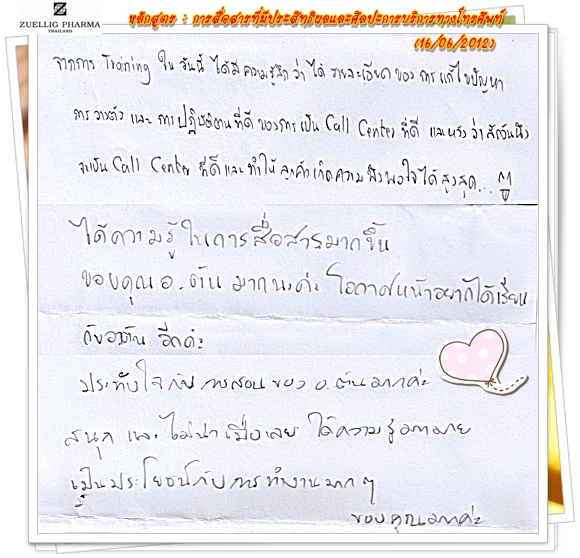 ZUELLIG PHARMA
THAILAND
หลักสูตร : การสื่อสารที่มีประสิทธิผลและศิลปะการบริการทางโทรศัพท์
(16/06/2012)
จากการ Training ใน วันนี้ ได้มีความรู้สึก ว่า ได้ รายละเอียด ของ การ แก้ไขปัญหา
การวางตัว และ การปฏิบัติตนที่ดี ของการเป็น Call Center ที่ดี และหวังว่าสักวันนึง
จะเป็น Call Center ที่ดีและทำให้ ลูกค้าเกิดความพึงพอใจได้สูงสุด...
ได้ความรู้ในการสื่อสารมากขึ้น
ขอบคุณ อ.ต้น มากนะค่ะ โอกาสหน้าอยากได้เรียน
กับอ.ต้น อีกค่ะ
ประทับใจกับการสอนของ อ.ต้นมากค่ะ
สนุก และ ไม่น่าเบื่อเลย ได้ความรู้มากมาย
เป็นประโยชน์กับการทำงานมาก ๆ
ขอบคุณมากค่ะ